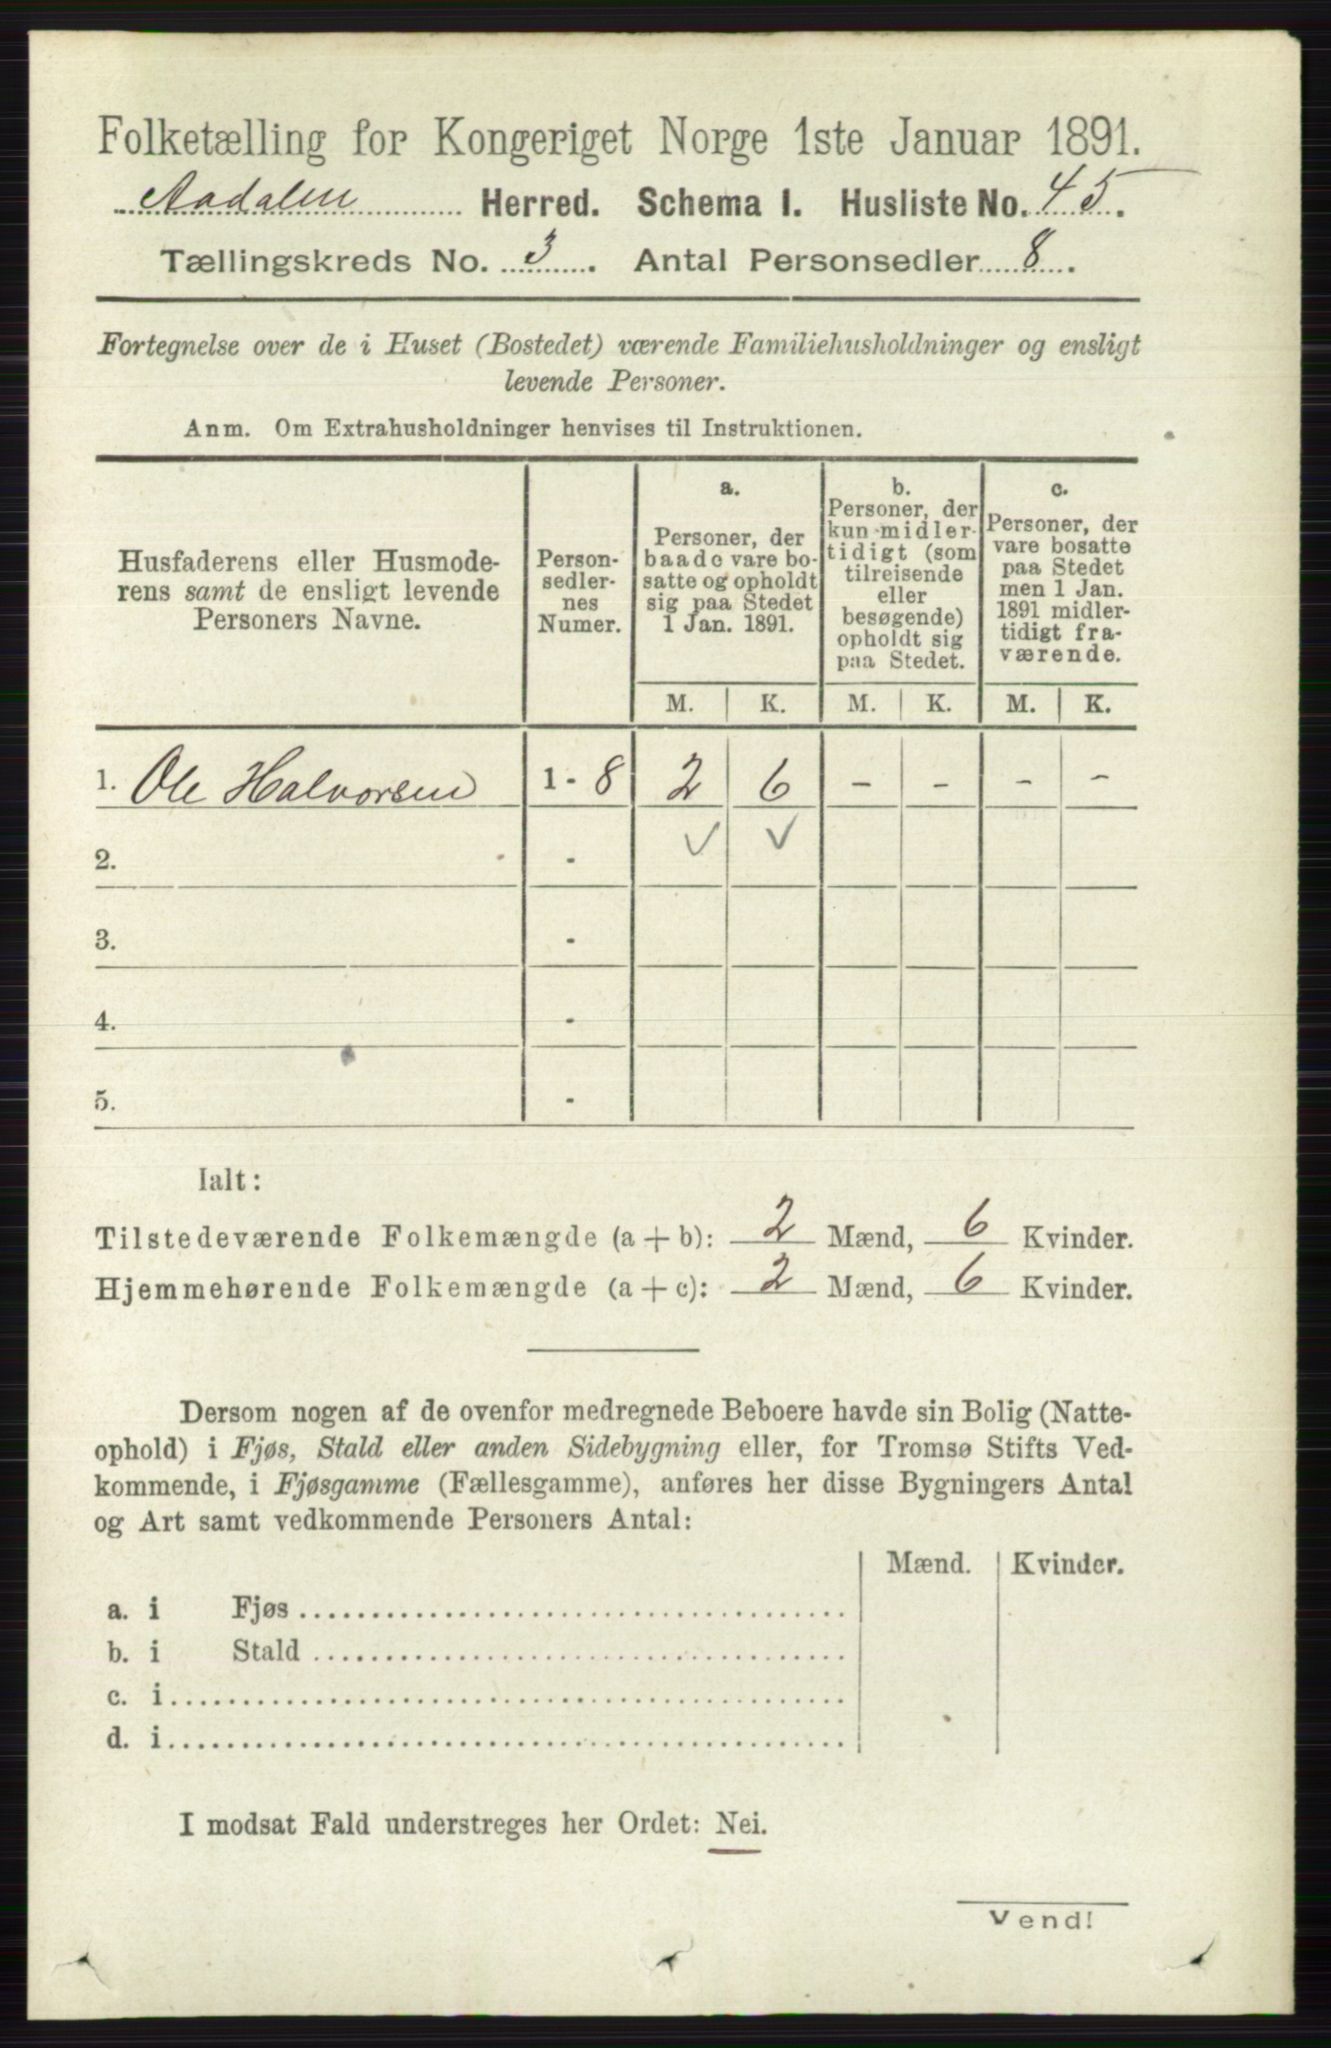 Folketælling for Kongeriget Norge 1ste Januar 1891.
Aadalen Herred. Schema I. Husliste No. 45.
Tællingskreds No. 3. Antal Personsedler 8.
Fortegnelse over de i Huset (Bostedet) værende Familiehusholdninger og ensligt
levende Personer.
Anm. Om Extrahusholdninger henvises til Instruktionen.
Husfaderens eller Husmode-
rens samt de ensligt levende
Personers Navne.
Person-
sedler-
nes
Numer.
a.
Personer, der
baade vare bo-
satte og opholdt
sig paa Stedet
1 Jan. 1891.
b.
Personer, der
kun midler-
tidigt (som
tilreisende
eller
besøgende)
opholdt sig
paa Stedet.
c.
Personer, der
vare bosatte
paa Stedet
men 1 Jan.
1891 midler-
tidigt fra-
værende.
M. K. M. K. M. K.
1. Ole Halvorsen 1 - 8 2 6 - - - -
2. - ✓ ✓
3. -
4. -
5. -
Ialt:
Tilstedeværende Folkemængde (a + b): 2 Mænd, 6 Kvinder.
Hjemmehørende Folkemængde (a + c): 2 Mænd, 6 Kvinder.
Dersom nogen af de ovenfor medregnede Beboere havde sin Bolig (Natte-
ophold) i Fjøs, Stald eller anden Sidebygning eller, for Tromsø Stifts Ved-
kommende, i Fjøsgamme (Fællesgamme), anføres her disse Bygningers Antal
og Art samt vedkommende Personers Antal:
Mænd. Kvinder.
a. i Fjøs
b. i Stald
c. i
d. i
I modsat Fald understreges her Ordet: Nei.
Vend!